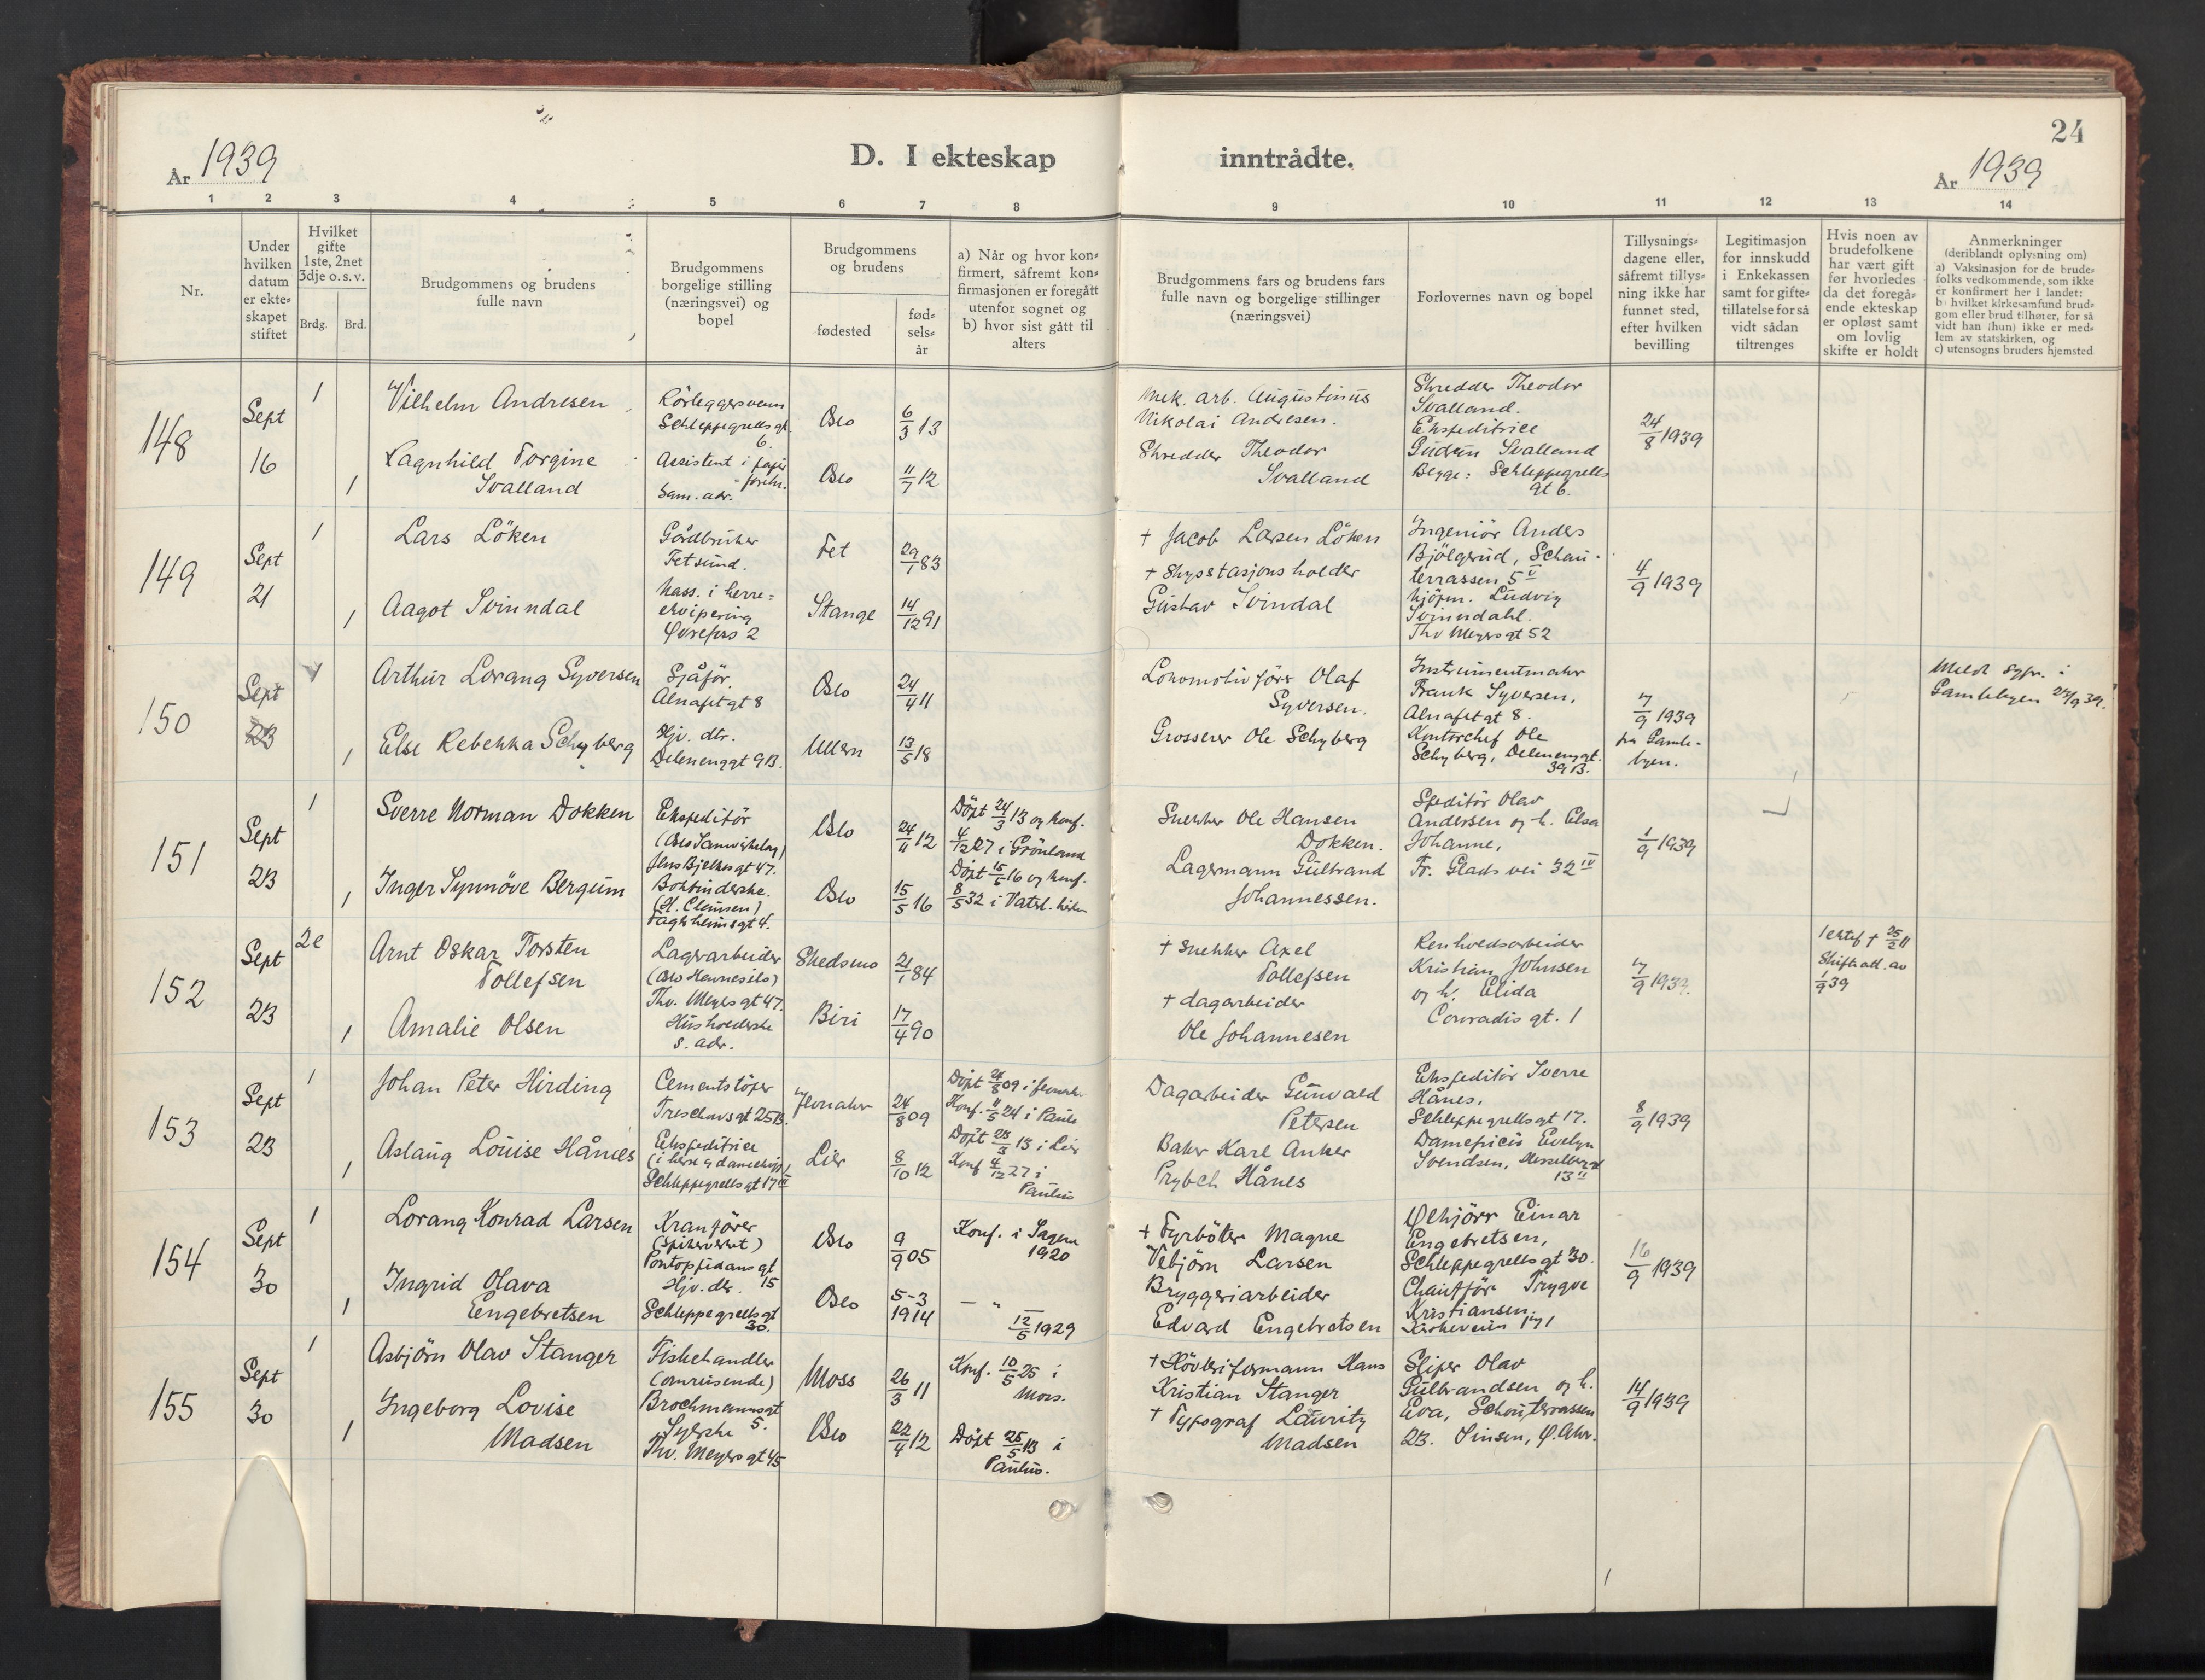 24
År 1939
D. I ekteskap inntrådte.
År 1939
1 2 3 4 5 6 7 8 9 10 11 12 13 14
Nr.
Under hvilken datum er ekte= skapet stiftet
Hvilket gifte 1ste, 2net 3dje o. s. v.
Brdg. Brd.
Brudgommens og brudens fulle navn
Brudgommens borgelige stilling (næringsvei) og bopel
Brudgommens og brudens
fødested
fød= sels= år
a) Når og hvor kon= firmert, såfremt kon= firmasjonen er foregått utenfor sognet og b) hvor sist gått til alters
Brudgommens fars og brudens fars fulle navn og borgelige stillinger (næringsvei)
Forlovernes navn og bopel
Tillysnings= dagene eller, såfremt tillys= ning ikke har funnet sted, efter hvilken bevilling
Legitimasjon for innskudd i Enkekassen samt for gifte= tillatelse for så vidt sådan tiltrenges
Hvis noen av brudefolkene har vært gift før hvorledes da det foregå= ende ekteskap er opløst samt om lovlig skifte er holdt
Anmerkninger (deriblandt oplysning om) a) Vaksinasjon for de brude= folks vedkommende, som ikke er konfirmert her i landet: b) hvilket kirkesamfund brud= gom eller brud tilhører, for så vidt han (hun) ikke er med= lem av statskirken, og c) utensogns bruders hjemsted
148
Sept 16
1
Vilhelm Andresen
Rörleggersvenn
Schleppegrells gt. 6.
Oslo
6/3 13
Mek. arb. Augustinus
Nikolai Andresen.
Skredder Theodor
Svalland.
Ekspeditrice
Gudrun Svalland
Begge: Schleppegrells
gt 6.
24/8 1939
1
Ragnhild Torgine
Svalland
Assistent i papir
Sam. adr.
Oslo
11/7 12
Skredder Theodor
Svalland
149
Sept 21
1
Lars Löken
Gårdbruker
Fetsund.
Fet
29/1 83
+ Jacob Larsen Löken
Ingeniör Anders
Bjölgerud, Schou-
terrassen 5 V
Kjöpm. Ludvig
Svinndahl.
Thv Meyers gt 52
4/9 1939
1
Aagot Svinndal
Kass. i herre=
ekvipering
Stange
14/12 91
+ Skysstasjonsholder
Gustav Svindal
150
Sept 23
1
Arthur Lorang Syversen
Sjåför.
Alnafet gt 8
Oslo
24/4 11
Lokomotivförer Olaf
Syversen.
Instrumentmaker
Frank Syversen,
Alnafet gt 8.
Kontorchef Ole
Schyberg, Delenenggt.
39 B.
7/9 1939
fra Gamle-
byen.
Meldt sgpr. i
Gamlebyen
1
Else Rebekka Schyberg
Hjv. dtr.
Delenenggt 9B.
Ullern
13/5 18
Grosserer Ole Schyberg
151
Sept 23
1
Sverre Norman Dokken
Ekspeditör
(Oslo Samvirkelag)
Jens Bjelkes gt 47.
Oslo
24/11 12
Döpt 24/3 13 og konf.
4/12 27 i Grönland
Snekker Ole Hansen
Dokken.
Speditör Olav
Andersen og h. Elsa
Johanne,
Fr. Glads vei 32 IV
1/9 1939
1
Inger Synnöve Bergum
Bokbinderske.
(H. Clausen)
Fagerheimsgt 4.
Oslo
15/5 16
Döpt 15/5 16 og konf.
8/5 32 i Vatrl. kirke
Lagermann Gulbrand
Johannessen.
152
Sept 23
2e
Arnt Oskar Torsten
Tollefsen
Lagerarbeider
(Oslo Havnesilo)
Thv. Meyers gt 47.
Skedsmo
21/1 84
+ Snekker Axel
Tollefsen
Renholdsarbeider
Kristian Johnsen
og h. Elida
Conradis gt. 1
7/9 1939.
1 ektef + 25/2 11
Skifteatt. av
1/9 39
1
Amalie Olsen
Husholderske
s. adr.
Biri
17/4 90
+ dagarbeider
Ole Johannesen
153
Sept 23
1
Johan Peter Hirding
Cementstöper
Treschows gt 25B.
Jevnaker
24/8 09
Döpt 24/8 09 i Jevnaker
Konf. 11/5 24 i Paulus
Dagarbeider Gunvald
Petersen
Ekspeditör Sverre
Hånes,
Schleppegrells gt 17.
Damefrisör Evelyn
Svendsen, Hesselberg gt
13 II
8/9 1939
1
Aslaug Louise Hånes
Ekspeditrice
Schleppegrells gt 17 III
Lier
8/10 12
Döpt 25/3 13 i Lier
Konf 4/12 27 i
Paulus
Baker Karl Anker
Prybch Hånes
154
Sept 30
1
Lorang Konrad Larsen
Kranförer
(Spikerverket)
Pontoppidans gt
15
Oslo
9/9 05
Konf. i Sagene
1920
+ Fyrböter Magne
Vebjörn Larsen
Ölkjörer Einar
Engebretsen,
Schleppegrells gt 30.
Chauffför Trygve
Kristiansen.
Kirkeveien 171
16/9 1939
1
Ingrid Olava
Engebretsen
Hjv. dtr.
Schleppegrells gt
30.
Oslo
5-3
1914
— " —
12/5 1929
Bryggeriarbeider
Edvard Engebretsen
155
Sept 30
1
Asbjörn Olav Stanger
Fiskehandler
(omreisende)
Brochmanns gt
5.
Moss
26/3 11
Konf. 10/5 25 i
Moss.
+ Hövleriformann Hans
Kristian Stanger
Sliper Olav
Gulbrandsen og h.
Eva, Schouterrassen
23. Sinsen, Ö. Aker.
14/9 1939
1
Ingeborg Lovise
Madsen
Syerske
Thv. Meyers gt 45
Oslo
22/4 12
Döpt 25/5 13 i
Paulus.
+ Typograf Lauritz
Madsen